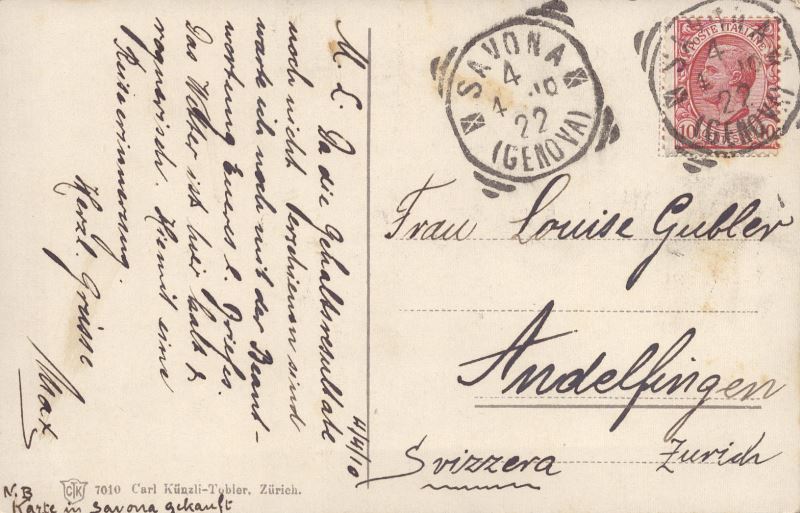 M. L. Da die Gehaltsresultate
noch nicht erschienen sind
warte ich noch mit der Beant-
wortung Eueres l. Briefes.
Das Wetter ist hier kalt &
regnerisch. Hiemit eine
Reiseerinnerung.
Herzl. Grüsse
Max
4/4/10
SAVONA
4
4 10
22
(GENOVA)
POSTE ITALIANE
10
SAVONA
4
4 10
22
(GENOVA)
Frau Louise Gubler
Andelfingen
Zürich
Svizzera
CTK 7010 Carl Künzli-Tobler, Zürich.
N.B
Karte in Savona gekauft